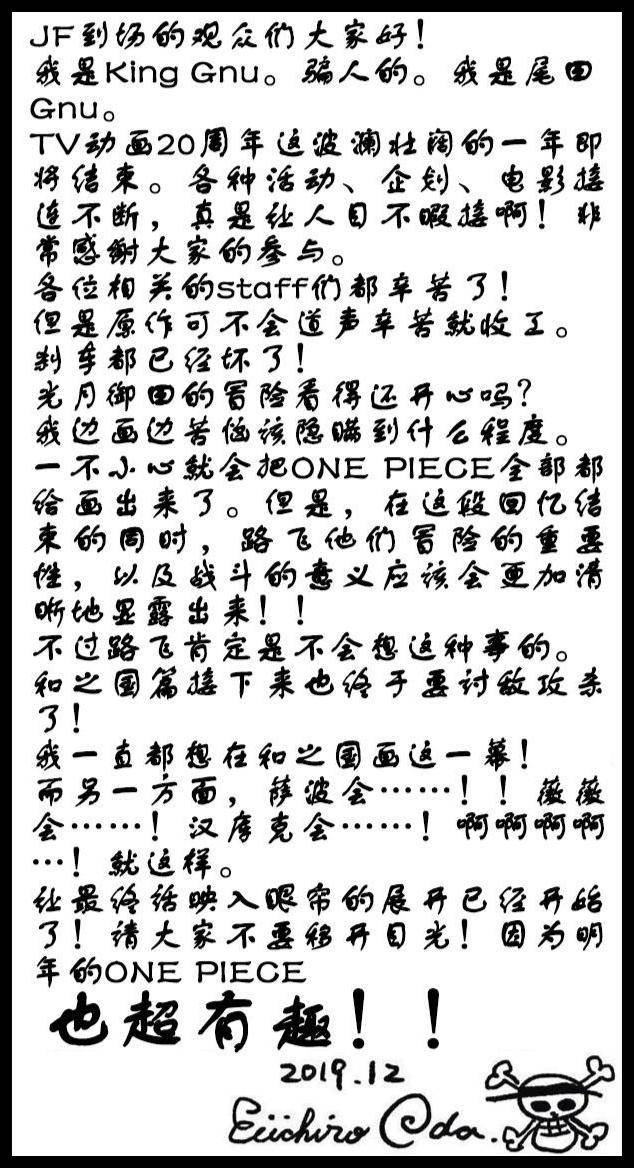 JF到场的观众们大家好！
我是King Gnu。骗人的。我是尾田
Gnu。
TV动画20周年这波澜壮阔的一年即
将结束。各种活动、企划、电影接
连不断，真是让人目不暇接啊！非
常感谢大家的参与。
各位相关的staff们都辛苦了！
但是原作可不会道声辛苦就收工。
刹车都已经坏了！
光月御田的冒险看得还开心吗？
我边画边苦恼该隐瞒到什么程度。
一不小心就会把ONE PIECE全部都
给画出来了。但是，在这段回忆结
束的同时，路飞他们冒险的重要
性，以及战斗的意义应该会更加清
晰地显露出来！！
不过路飞肯定是不会想这种事的。
和之国篇接下来也终于要讨敌攻杀
了！
我一直都想在和之国画这一幕！
而另一方面，萨波会……！！薇薇
会……！汉库克会……！啊啊啊啊
…！就这样。
让最终话映入眼帘的展开已经开始
了！请大家不要移开目光！因为明
年的ONE PIECE
也超有趣！！
2019.12
Eiichiro Oda.